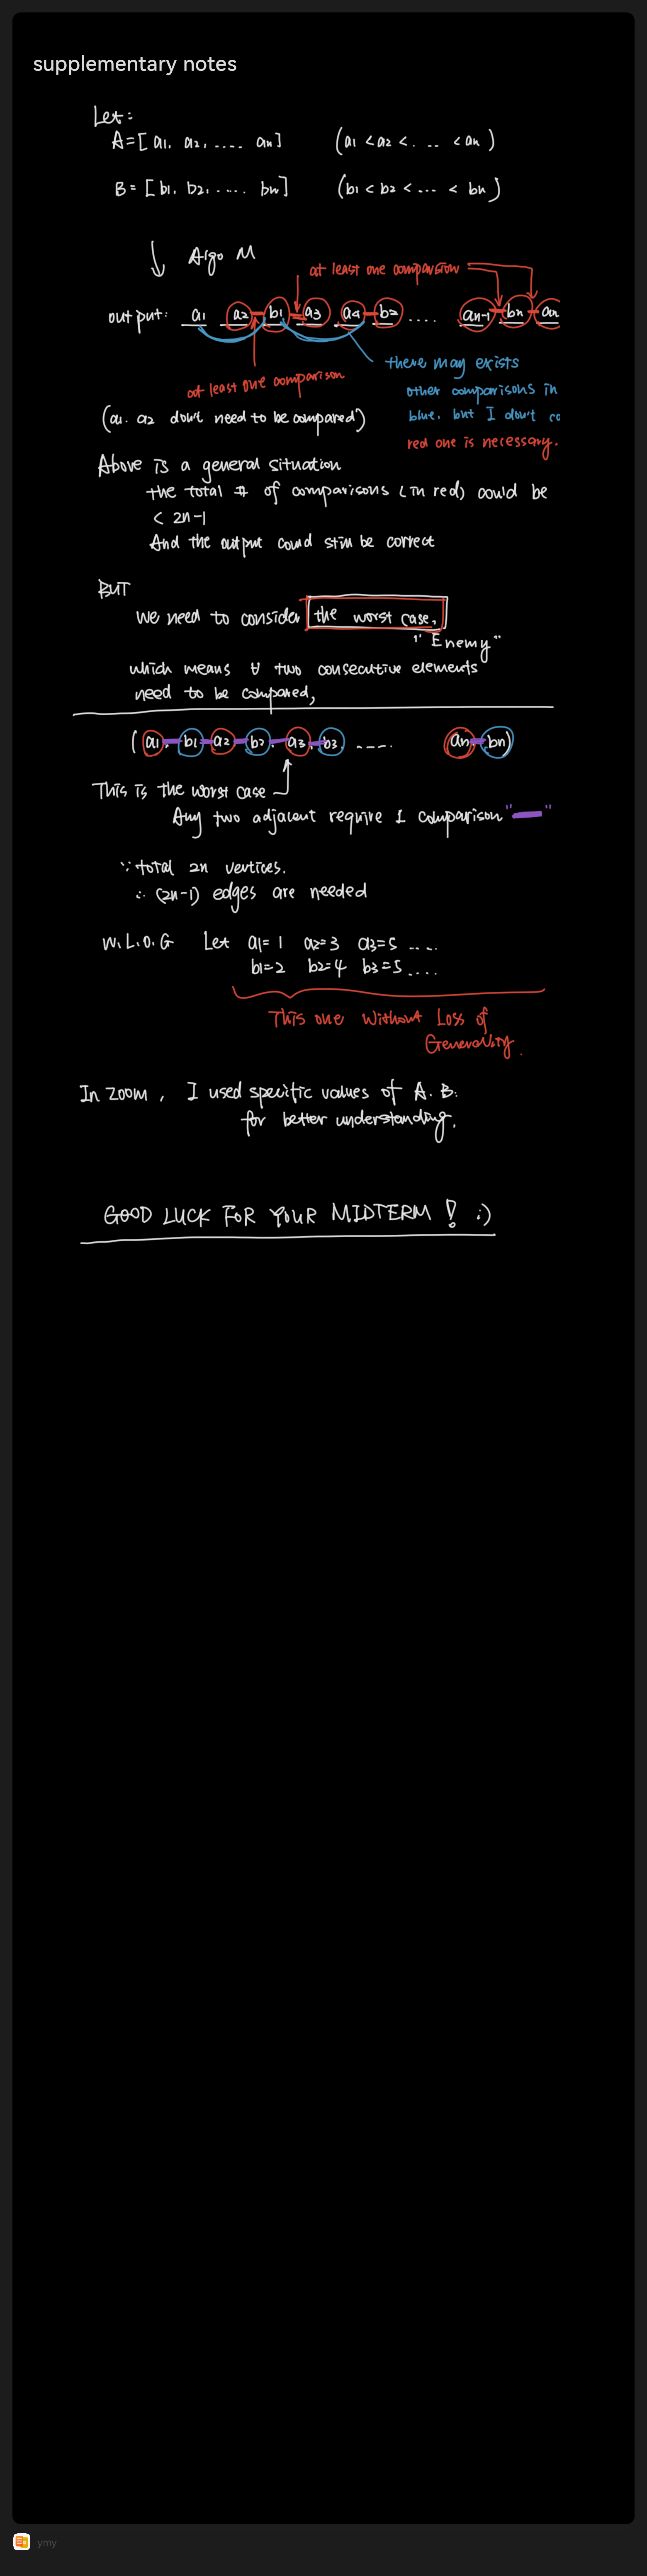 supplementary notes
Let:
A = [ a1, a2, .... an ] (a1 < a2 < . .. < an )
B = [ b1, b2, .... bn ] (b1 < b2 < ... < bn )
↓ Algo M
at least one comparision
output: a1 a2 b1 a3 a4 b2 .... an-1 bn an
there may exists
at least one comparison
other comparisons in
(a1. a2 don't need to be compared)
blue. but I don't co
red one is necessary.
Above is a general situation
the total # of comparisons (in red) could be
< 2n-1
And the output could still be correct
BUT
we need to consider the worst case,
"Enemy"
which means ∀ two consecutive elements
need to be compared,
( a1, b1, a2, b2, a3, b3, ..... an bn)
This is the worst case
Any two adjacent require 1 comparison "—"
∵ total 2n vertices.
∴ (2n-1) edges are needed
W.L.O.G Let a1= 1 a2=3 a3=5 ....
b1=2 b2=4 b3=5 ....
This one Without Loss of
Generality.
In Zoom, I used specific values of A. B.
for better understanding.
GOOD LUCK FOR YOUR MIDTERM ! :)
ymy